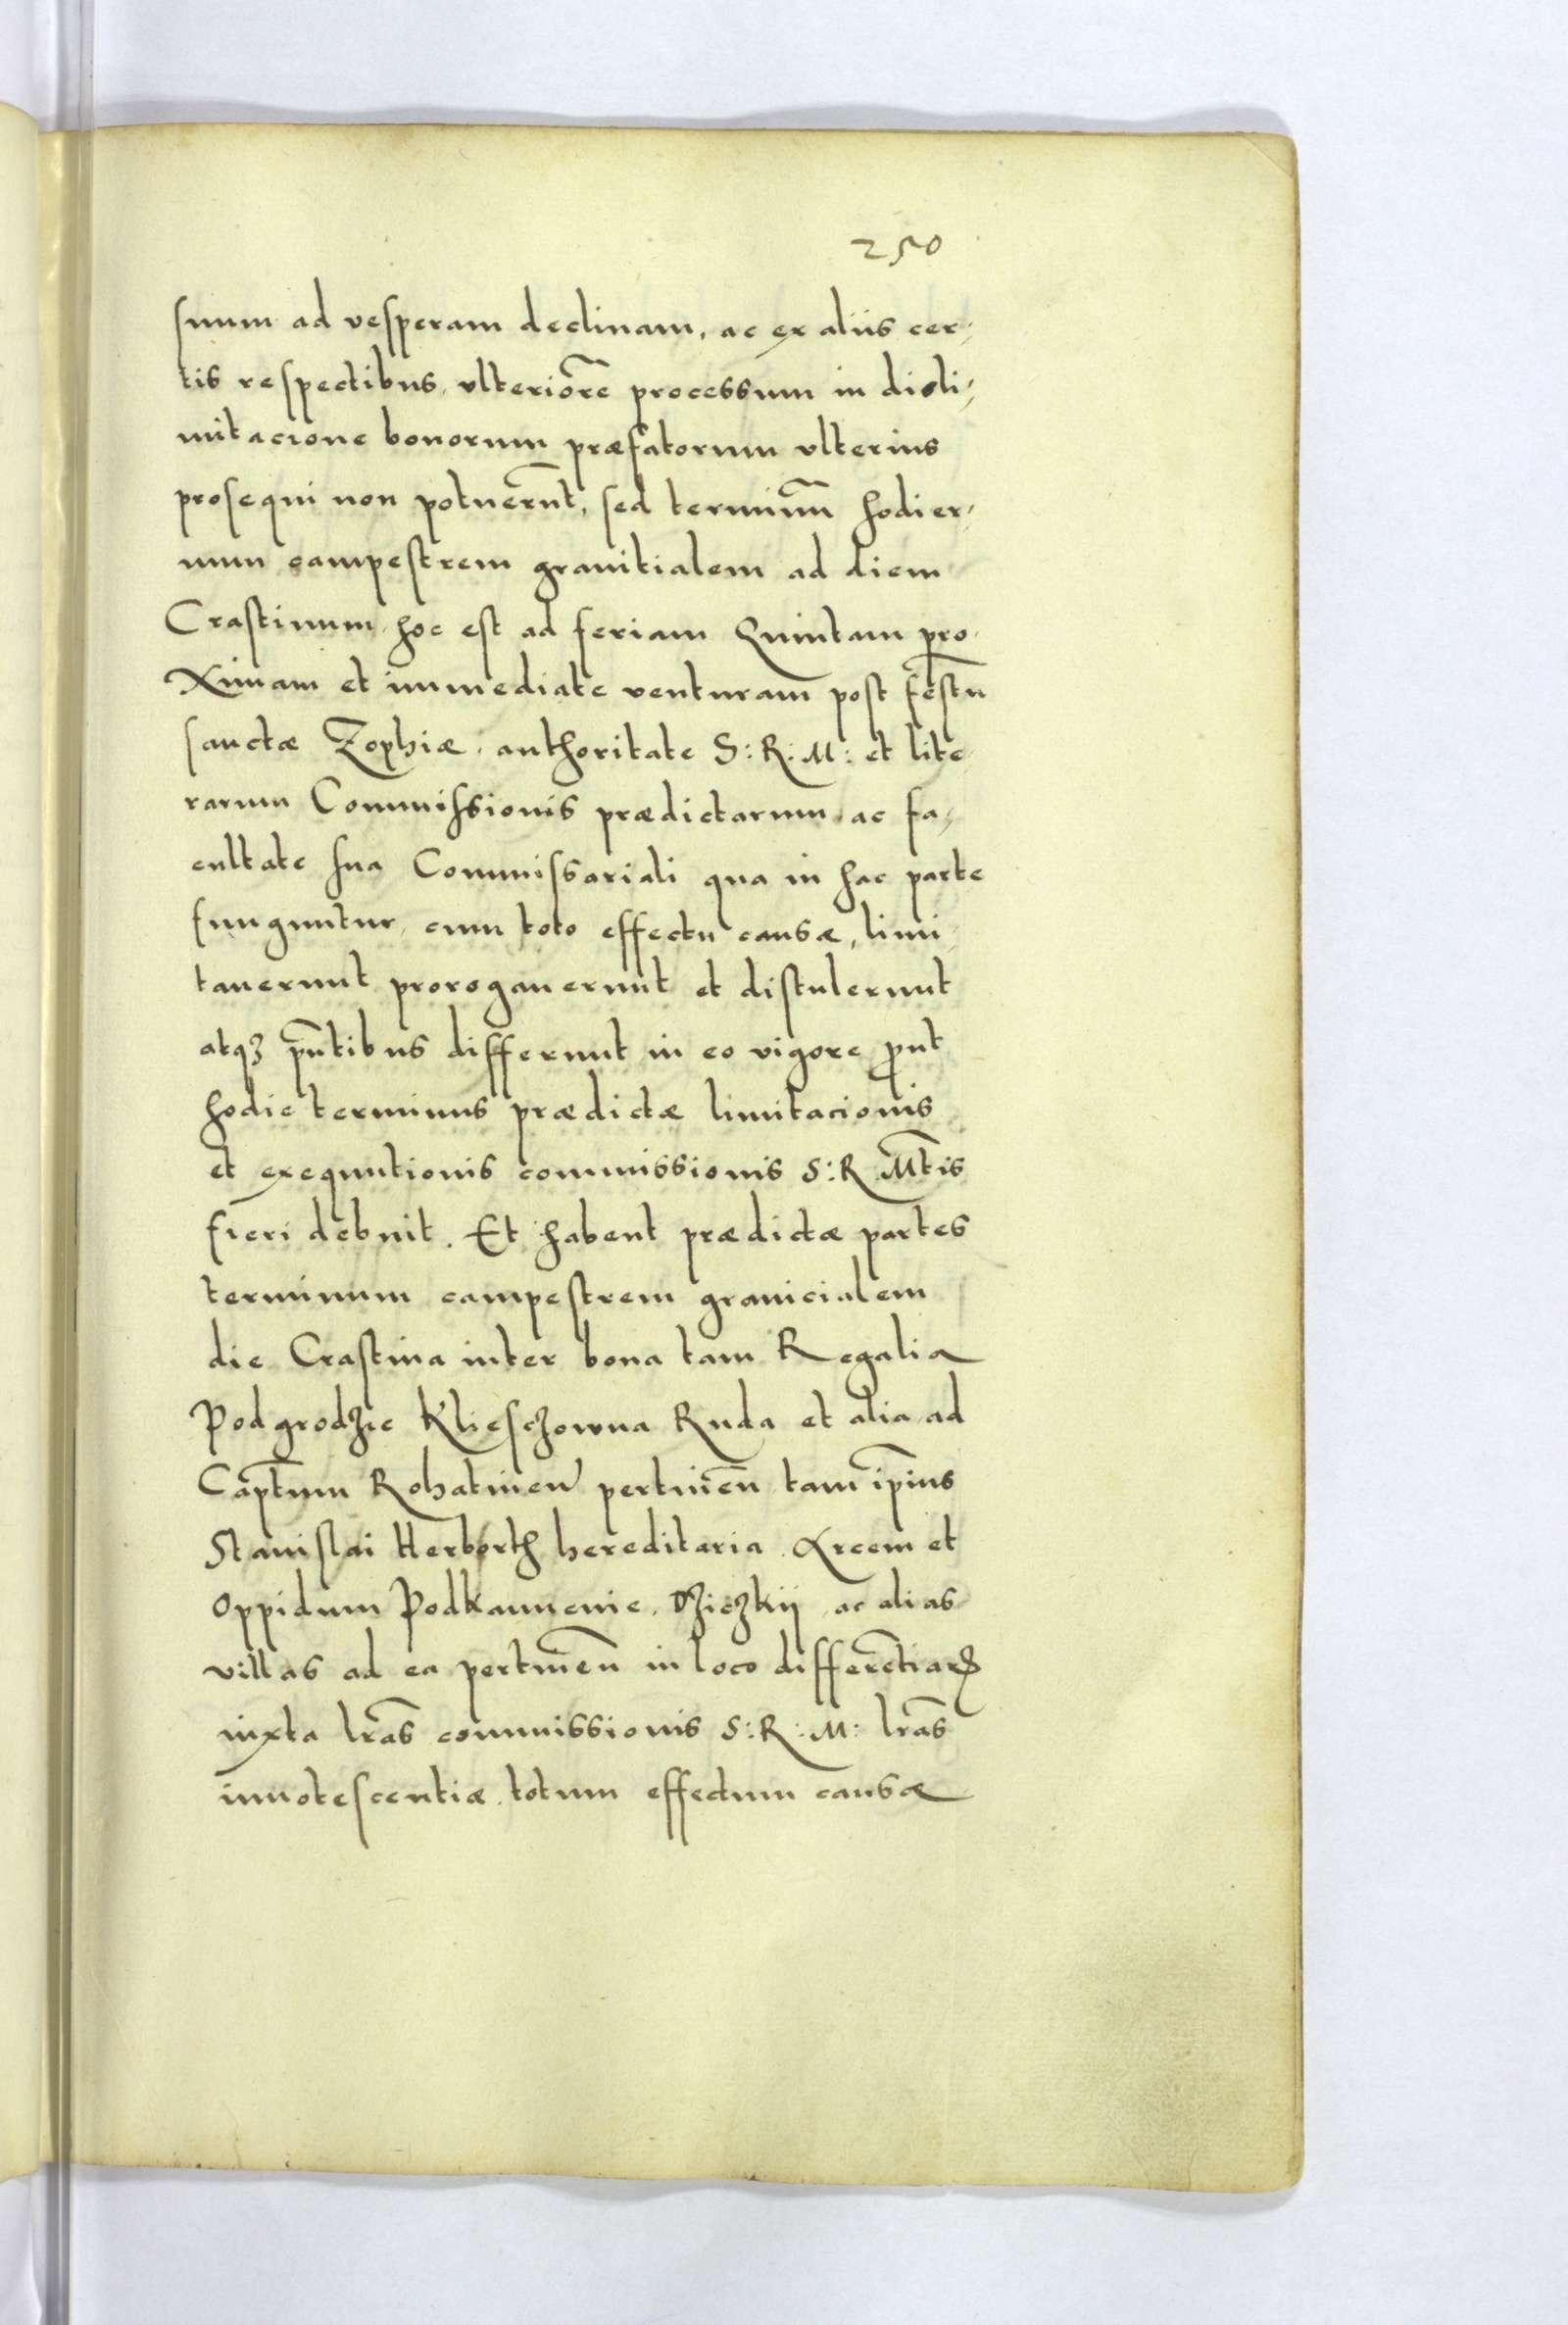 250
suum ad vesperam declinam, ac ex aliis cer,
tis respectibus ulteriorẽ processum in disli,
mitacione bonorum præfatorum vlterius
prosequi non potuerũt, sed terminũ hodier,
num campestrem granitialem ad diem
Crastinum, hoc est ad feriam Quintam pro,
ximam et immediate venturam post festũ
sanctæ Zophiæ, authoritate S: R: M: et lite,
rarum Commissionis prædictarum ac fa,
cultate sua Commissariali qua in hac parte
funguntur, cum toto effectu causæ, limi,
tauerunt prorogauerunt et distulerunt
atqꝫ pñtibus differunt in eo vigore ꝓut
hodie terminus prædictæ limitacionis
et exequutionis commissionis S: R Mtis
fieri debuit. Et habent prædictæ partes
terminum campestrem granicialem
die Crastina inter bona tam Regalia
Podgrodzie Klieschowna Ruda et alia ad
Captum Rohatinen pertineñ tam ipius
Stanislai Herborth hereditaria Arcem et
Oppidum Podkamienie, Dziczkij ac alias
villas ad ea pertineñ in loco differẽtiarꝝ
iuxta lras commissionis S: R: M: lras
innotescentiæ totum effectum causæ